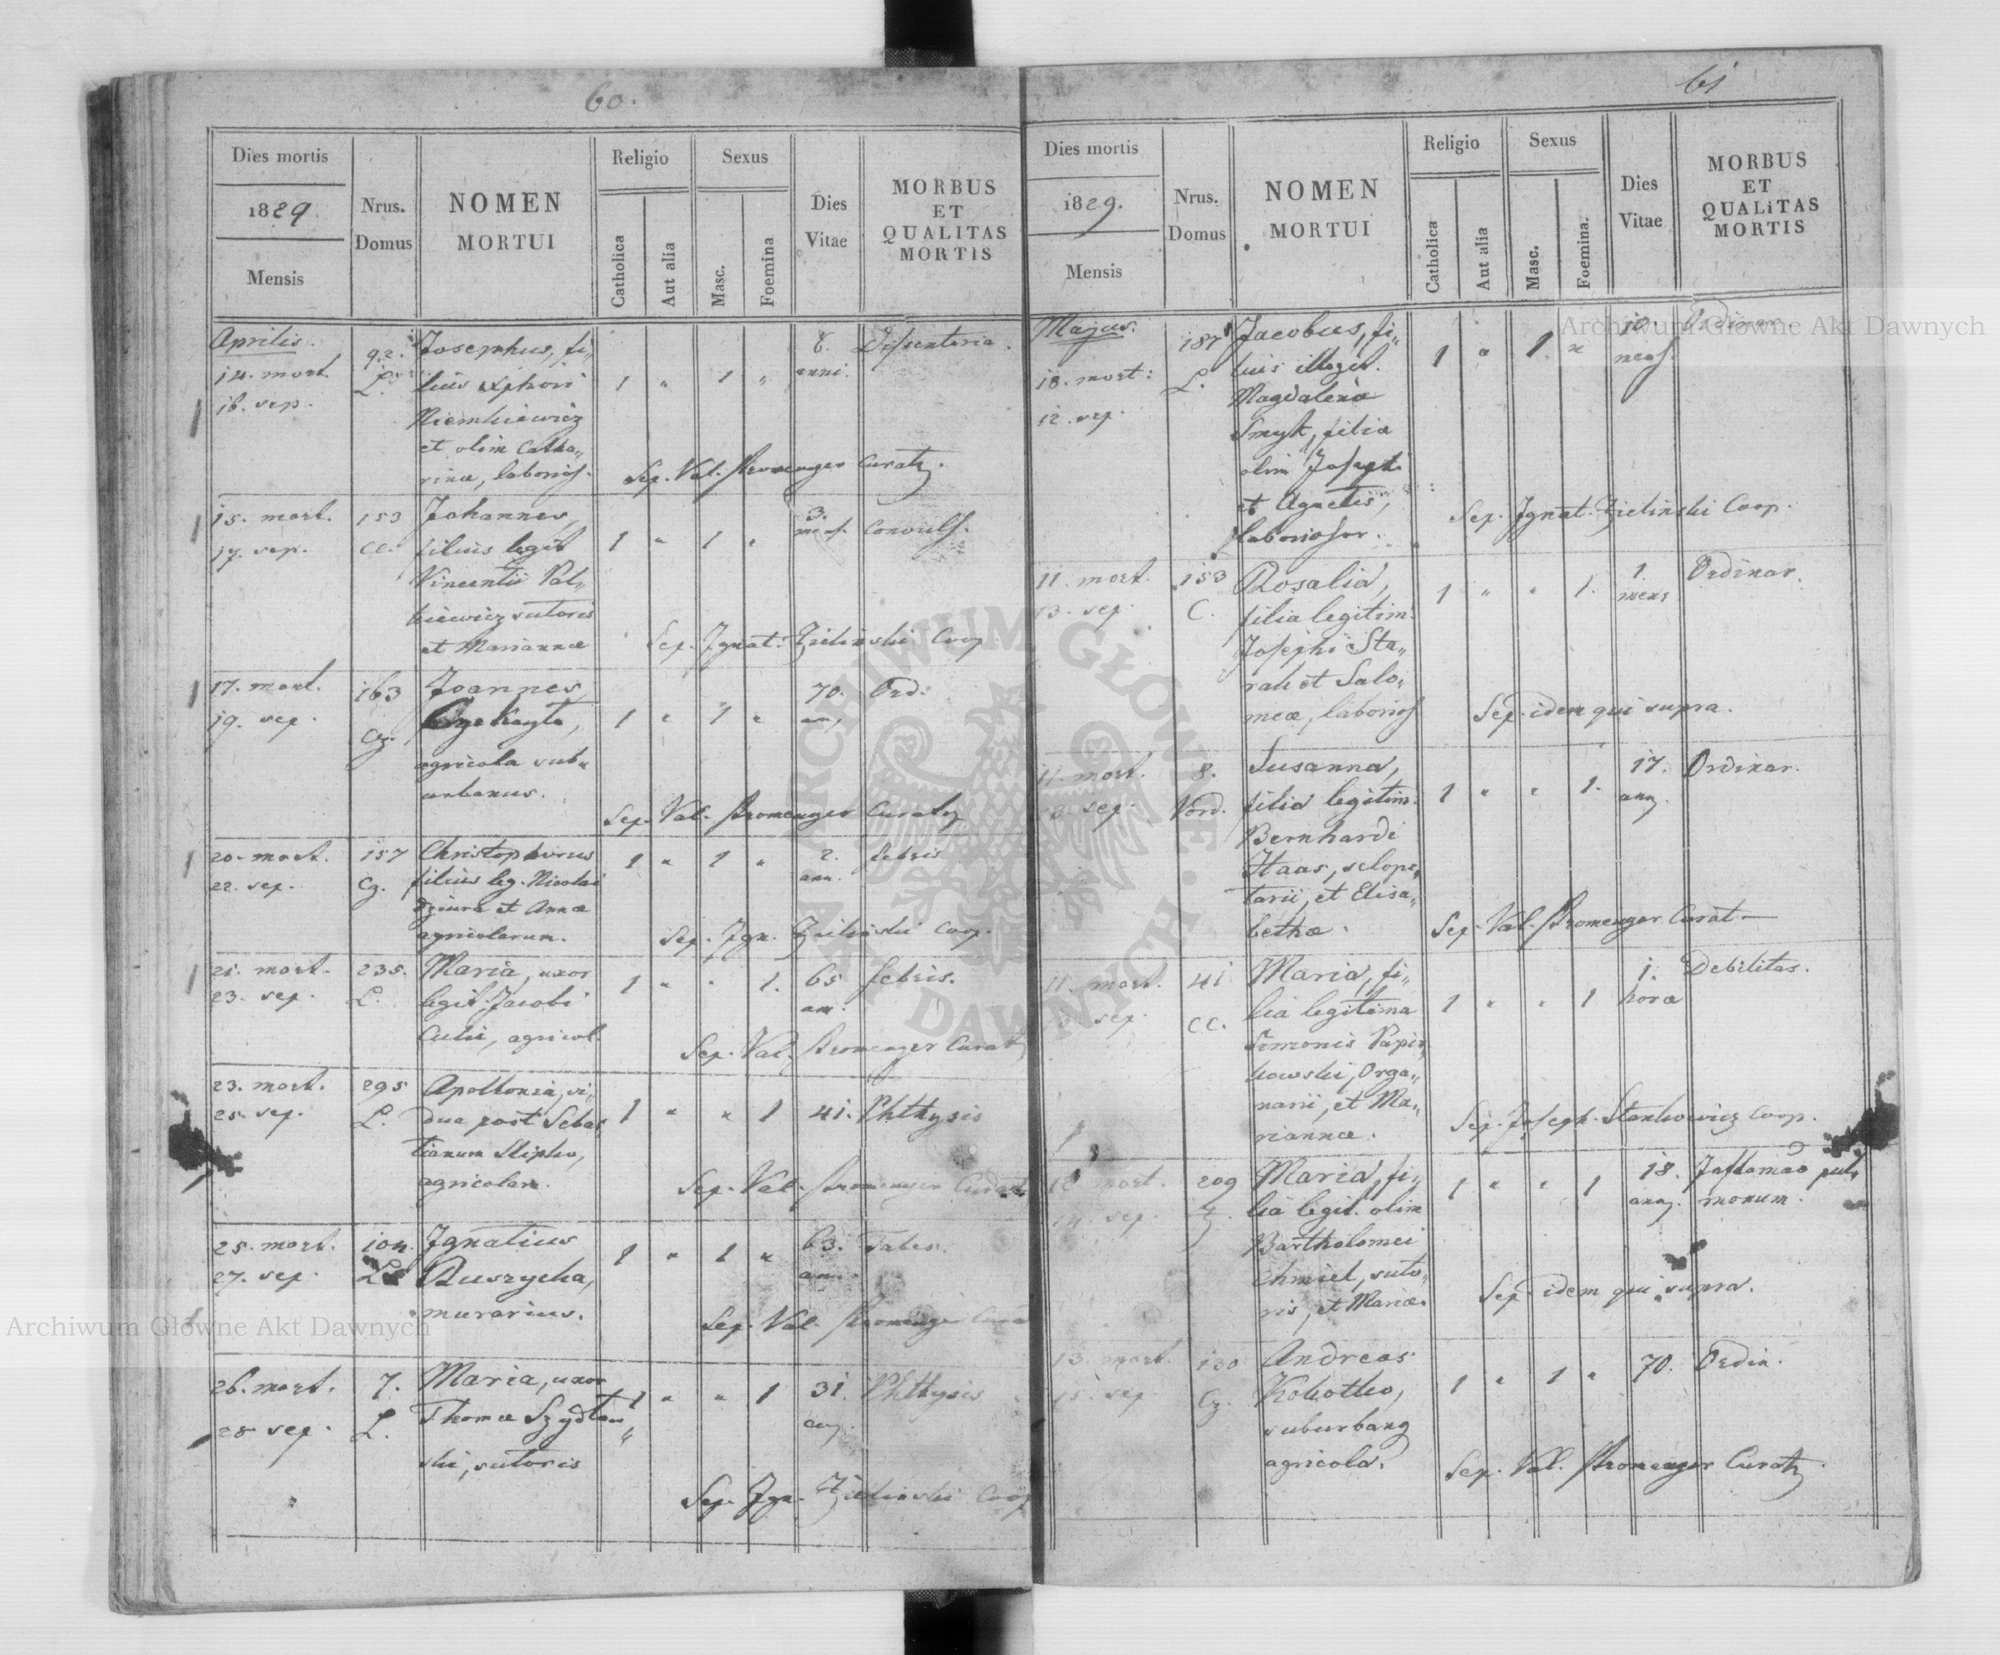 60.
Dies mortis
1829.
Mensis
Nrus.
Domus
NOMEN
MORTUI
Religio
Catholica
Aut alia
Sexus
Masc.
Foemina
Dies
Vitae
MORBUS
ET
QUALITAS
MORTIS
Aprilis.
14. mort.
16. sep.
92.
L.
Josephus, fi„
lius
Niemkiewicz
et olim Catha„
rinæ, laborios.
1 „ 1 „
8.
anni.
Disenteria.
Sep. Val. Curatz.
15. mort.
17. sep.
153
CC.
Johannes,
filius legit
Vincentii Pal„
kiewicz sutoris
et Mariannæ
1 „ 1 „
3.
mens.
Convuls.
Sep. Ignat. Zielinski Coop.
17. mort.
19. sep.
163
Cz.
Joannes
agricola sub„
urbanus.
1 „ 1 „
70.
an,
Ord.
Sep. Val. Curatz
20. mort.
22. sep.
157
Cz.
Christophorus
filius leg. Nicolai
Dziura et Annæ
agricolarum.
1 „ 1 „
2.
ann.
febris
Sep. Ign. Zielinski Coop.
21. mort.
23. sep.
235.
L.
Maria, uxor
legit. Jacobi
agricol.
1 „ „ 1.
65
an.
febris.
Sep. Val. Curat
23. mort.
25. sep.
295
L.
Apollonia, vi„
dua post Sebas„
tianum
agricolam.
1 „ „ 1
41.
Phthysis
Sep. Val.
25. mort.
27. sep.
104.
L.
Ignatius
Ruszycka,
murarius.
1 „ 1 „
63.
an.
Tabes.
Sep. Val.
26. mort.
28 sep.
7.
L.
Maria, uxor
Thomæ Szydłow„
ski, sutoris
1 „ „ 1
31.
Phthysis
Sep. Ign. Zielinski Coop
61
Dies mortis
1829.
Mensis
Nrus.
Domus
NOMEN
MORTUI
Religio
Catholica
Aut alia
Sexus
Masc.
Foemina.
Dies
Vitae
MORBUS
ET
QUALITAS
MORTIS
Majus.
10. mort:
12. sep.
187
L.
Jacobus, fi„
lius illegit.
Magdalenæ
Smyk, filiæ
olim Josephi
et Agnetis,
laboriosor.
1 „ 1. „
10.
mens.
Ordinar.
Sep. Ignat. Zielinski Coop.
11. mort.
13. sep.
153
C.
Rosalia,
filia legitim.
Josephi Sta„
rak et Salo„
meæ, laborios
1 „ „ 1.
1.
mens
Ordinar.
Sep. idem qui supra.
11. mort.
13. sep.
8.
Nord.
Susanna,
filia legitim.
Bernhardi
Haas, sclope„
tarii, et Elisa„
bethæ.
1 „ „ 1.
17.
Ordinar.
Sep. Val. Curat
11. mort.
13. sep.
41
CC.
Maria, fi„
lia legitima
Simonis Papier„
kowski, Orga„
narii, et Ma„
riannæ.
1 „ „ 1
1.
hora
Debilitas.
Sep. Joseph. Stankowicz Coop.
mort.
14. sep.
209
Maria, fi„
lia legit. olim
Bartholomei
Chmiel, suto„
ris, et Mariæ.
1 „ „ 1
18.
pul„
monum.
Sep. idem qui supra.
13. mort.
15. sep.
130
Cz.
Andreas
Kokotko,
suburbang
agricola.
1 „ 1 „
70.
Ordin.
Sep. Val. Curatz.
Archiwum Głowne Akt Dawnych
Archiwum Głowne Akt Dawnych
ARCHIWUM GŁÓWNE AKT DAWNYCH